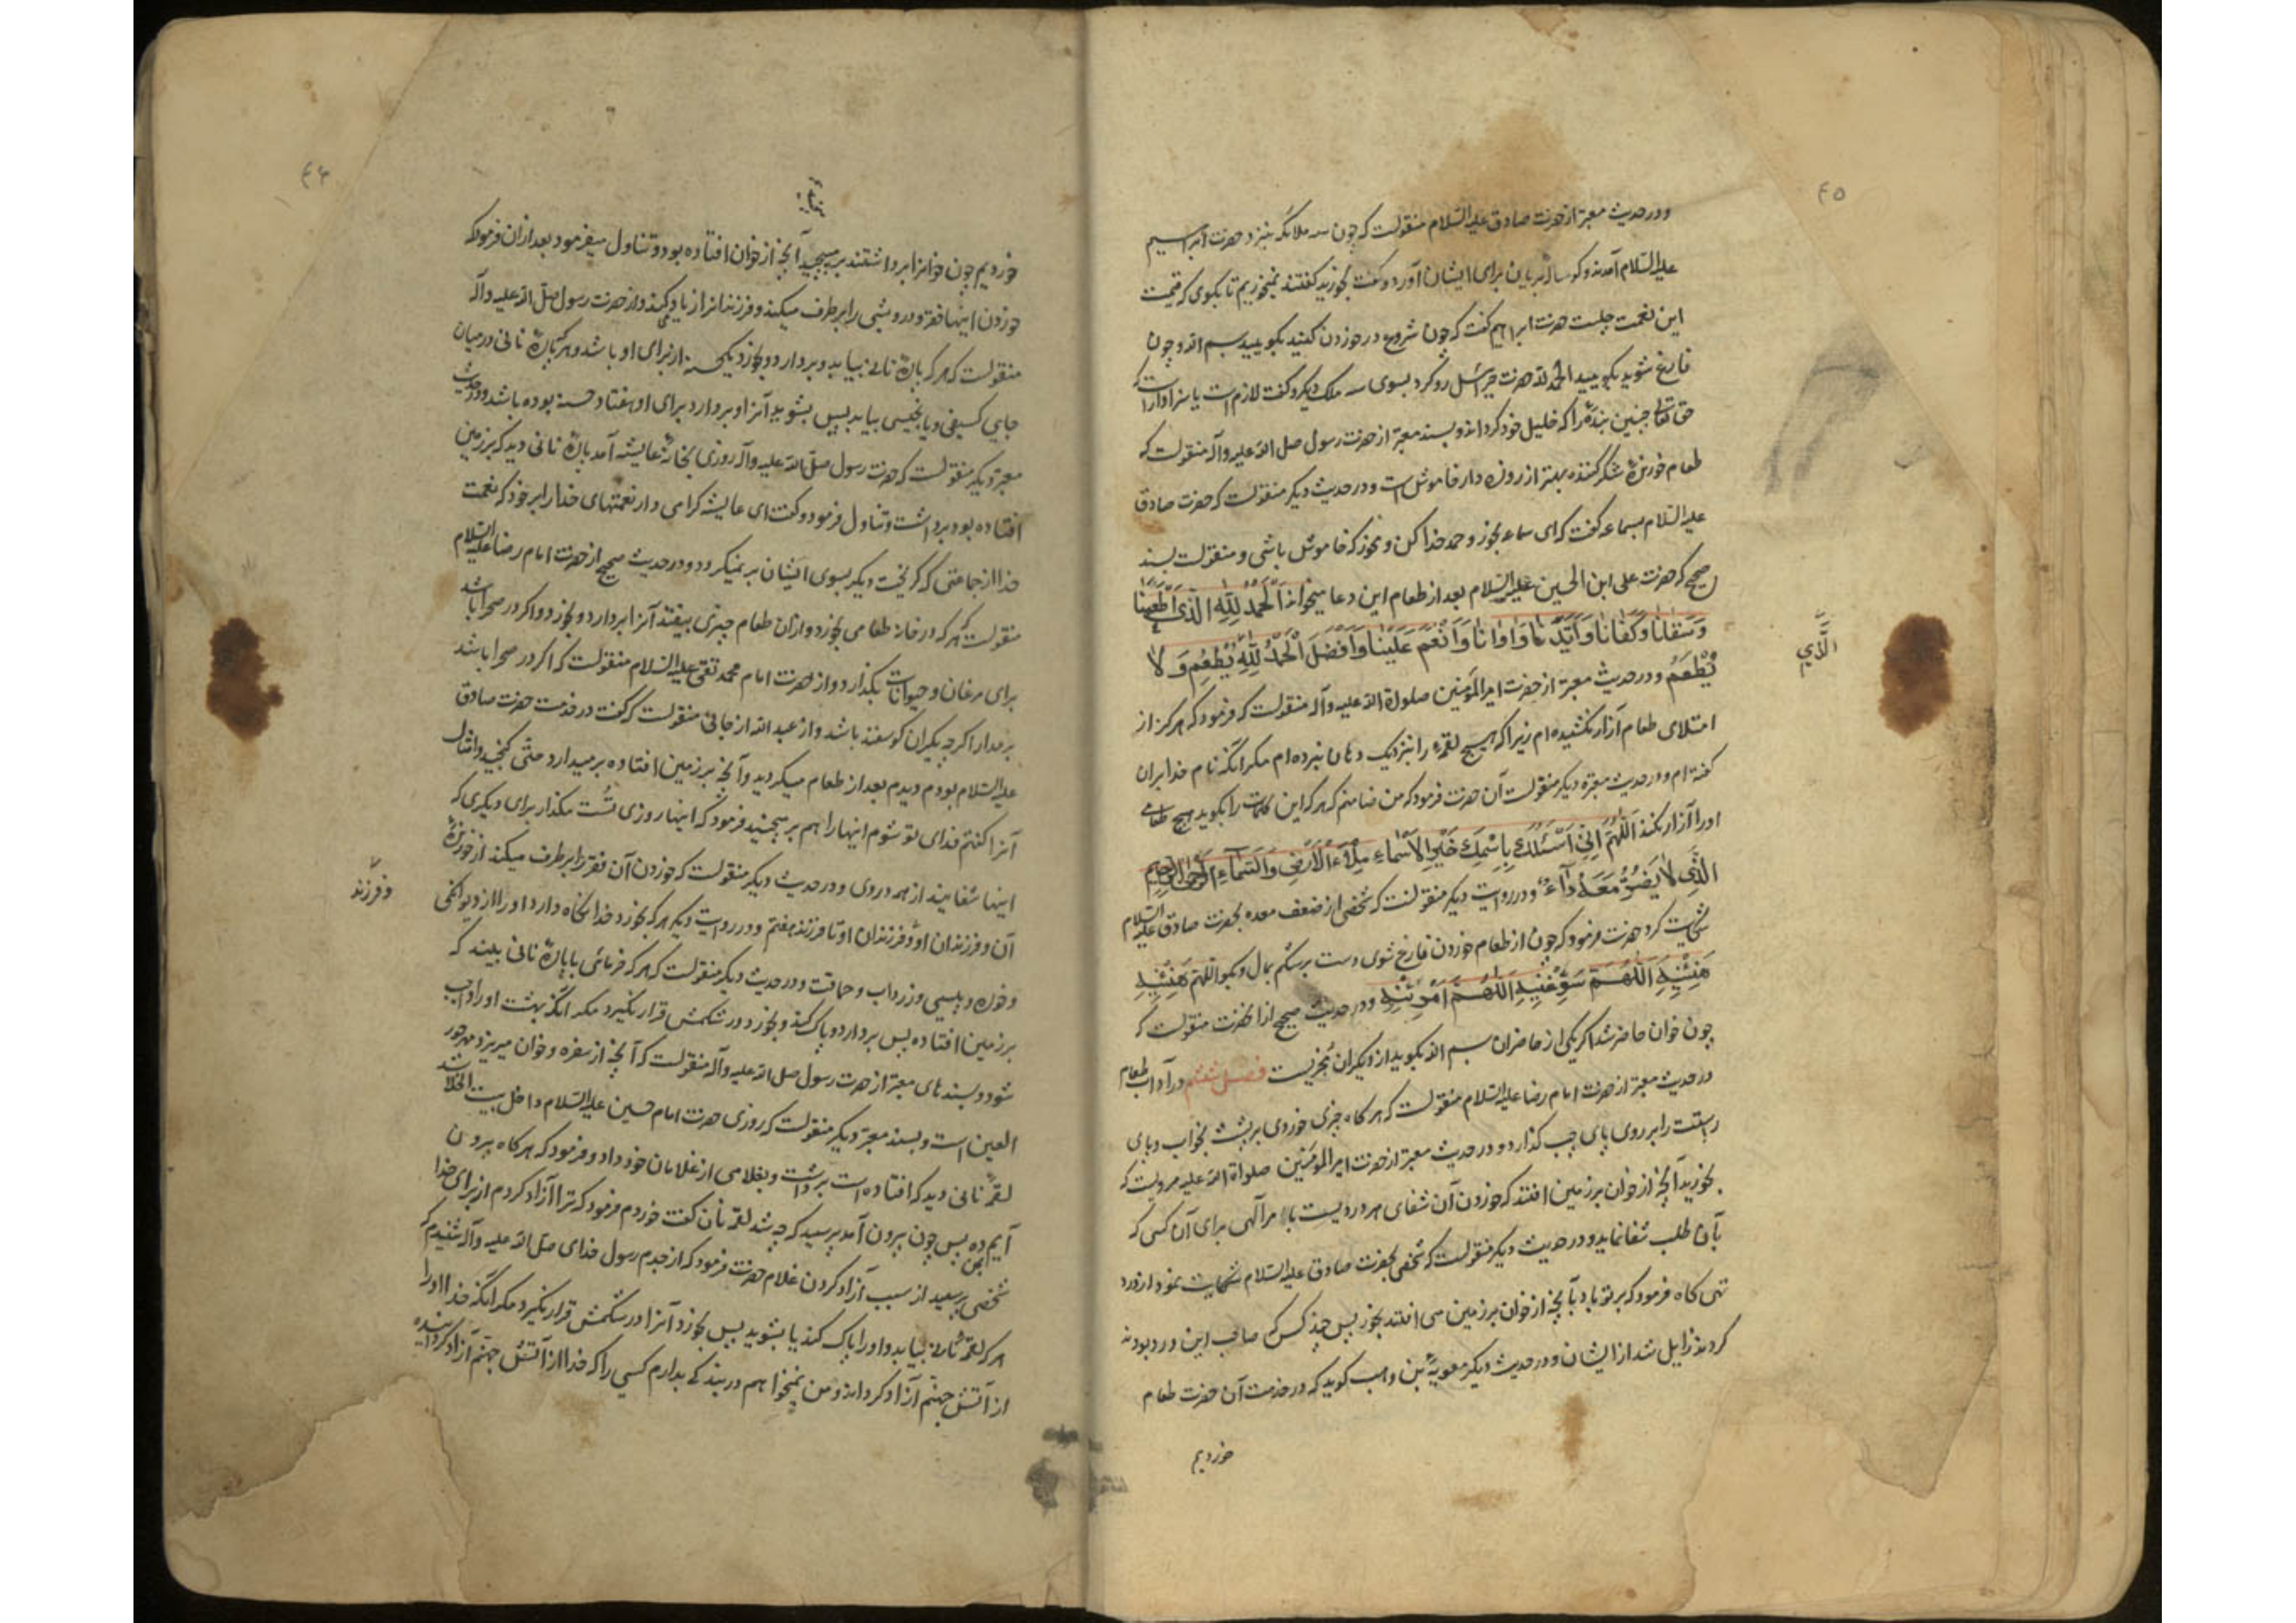 ٤٥
و در حدیث معتبر از حضرت صادق علیه السّلام منقولست که چون سه ملائکه بنزد حضرت ابراهیم
علیه السّلام آمدند و کوساله بریان برای ایشان آورد و گفت بخورید گفتند نمیخوریم تا بکوی که قیمت
این نعمت چیست حضرت ابراهیم گفت که چون شروع در خوردن کنید بکویید بسم الله و چون
فارغ شوید بکویید الحمد لله حضرت جبرائیل رو کرد بسوی سه ملک دیکر و گفت لازم است یا سزاوار است که
حق تعالی چنین بنده را که خلیل خود کرداند و بسند معتبر از حضرت رسول صلی الله علیه وآله منقولست که
طعام خورندهٔ شکر کننده بهتر از روزه دار خاموش است و در حدیث دیکر منقولست که حضرت صادق
علیه السّلام بسماعه گفت که ای سماعه بخور و حمد خدا کن و نخور که خاموش باشی و منقولست بسند
صحیح که حضرت علی ابن الحسین علیه السّلام بعد از طعام این دعا میخواند اَلْحَمْدُ لِلّٰهِ الَّذی اَطْعَمَنَا
وَسَقَانَا وَکَفَانَا وَاَیَّدَنَا وَاوَانَا وَاَنْعَمَ عَلَیْنَا وَاَفْضَلَ اَلْحَمْدُ لِلّٰهِ یُطْعِمُ وَلا
الَّذی
یُطْعَمُ و در حدیث معتبر از حضرت امیر المؤمنین صلوة الله علیه وآله منقولست که فرمود که هرکز از
امتلای طعام آزار نکشیده ام زیرا که هیچ لقمهٔ را بنزدیک دهان نبرده ام مکر آنکه نام خدا بر آن
کفته ام و در حدیث معتبره دیکر منقولست آن حضرت فرمود که من ضامنم که هر که این کلمات را بکوید هیچ طعامی
او را آزار نکند اَللّهُمَّ اِنّی اَسْئَلُکَ بِاِسْمِکَ خَیْرِ الْاَسْماءِ مِلْاَ الْاَرْضِ وَالسَّماءِ الرَّحْمٰنِ الرَّحِیمِ
الَّذِی لا یَضُرُّ مَعَهُ داءٌ و در روایت دیکر منقولست که شخصی از ضعف معده بحضرت صادق علیه السلام
شکایت کرد حضرت فرمود که چون از طعام خوردن فارغ شوی دست بر شکم بمال و بکو اللّهُمَّ هَنِّئْنِیهِ
هَنِّئْنِیهِ اَللّهُمَّ سَوِّغْنِیهِ اَللّهُمَّ اَمْرِئْنِیهِ و در حدیث صحیح از آنحضرت منقولست که
چون خوان حاضر شد اکر یکی از حاضران بسم الله بکوید از دیکران مجزیست فصل ششم در آداب طعام
در حدیث معتبر از حضرت امام رضا علیه السّلام منقولست که هر کاه چیزی خوردی بر پشت بخواب و پای
راستت را بر روی پای چپ کذار و در حدیث معتبر از حضرت امیر المؤمنین صلواة الله علیه مرویست که
بخورید آنچه از خوان بر زمین افتد که خوردن آن شفای هر دردیست بامر آلهی برای آن کسی که
بآن طلب شفا نماید و در حدیث دیکر منقولست که شخصی بحضرت صادق علیه السّلام شکایت نمود از درد
تهی کاه فرمود که بر تو باد بآنچه از خوان بر زمین می افتد بخور پس چند کس که صاحب این درد بودند
کردند زایل شد از ایشان و در حدیث دیکر معویة بن وهب کوید که در خدمت آن حضرت طعام
خوردیم
٤٦
خوردیم چون خوانرا برداشتند بر میچید آنچه از خوان افتاده بود و تناول میفرمود بعد از آن فرمود که
خوردن اینها فقر و درویشی را برطرف میکند و فرزندانرا زیاد میکند و از حضرت رسول صلّی الله علیه وآله
منقولست که هر که پارهٔ نانی بیابد و بردارد و بخورد یکحسنه از برای او باشد و هر که پارهٔ نانی در میان
جایی کسیفی و یا نجسی بیابد پس بشوید آنرا و بردارد برای او هفتاد حسنه بوده باشد و در حدیث
معتبر دیکر منقولست که حضرت رسول صلّی الله علیه وآله روزی بخانهٔ عایشه آمد پارهٔ نانی دید که بر زمین
افتاده بود برداشت و تناول فرمود و گفت ای عایشه کرامی دار نعمتهای خدا را بر خود که نعمت
خدا از جماعتی که کریخت دیکر بسوی ایشان بر نمیکردد و در حدیث صحیح از حضرت امام رضا علیه السّلام
منقولست که هر که در خانه طعامی بخورد و از آن طعام چیزی بیفتد آنرا بردارد و بخورد و اکر در صحرا باشد
برای مرغان و حیوانات بکذارد و از حضرت امام محمد تقی علیه السّلام منقولست که اکر در صحرا باشد
بر مدار اکرچه یکران کوسفند باشد و از عبد الله ارجانی منقولست که گفت در خدمت حضرت صادق
علیه السّلام بودم دیدم بعد از طعام میکردید و آنچه بر زمین افتاده بر میدارد حتی کنجید و امثال
آنرا کفتم فدای تو شوم اینها را هم بر میچینید فرمود که اینها روزی تُست مکذار برای دیکری که
اینها شفایند از همه دردی و در حدیث دیکر منقولست که خوردن آن فقر را برطرف میکند از خورندهٔ
آن و فرزندان او و فرزندان او تا فرزند هفتم و در روایت دیکر هر که بخورد خدا نکاه دارد او را از دیوانکی
و فرزند
و خوره و پیسی و زرداب و حماقت و در حدیث دیکر منقولست که هر که خرمائی یا پارهٔ نانی بیند که
بر زمین افتاده پس بردارد و پاک کند و بخورد در شکمش قرار نکیرد مکر آنکه بهشت او را واجب
شود و بسند های معتبر از حضرت رسول صلی الله علیه وآله منقولست که آنچه از سفره و خوان میریزد مهر حور
العین است و بسند معتبر دیکر منقولست که روزی حضرت امام حسین علیه السّلام داخل بیت الخلا شد
لقمهٔ نانی دید که افتاده است برداشت و بغلامی از غلامان خود داد و فرمود که هر کاه بیرون
آیم بمن ده پس چون بیرون آمد پرسید که چه شد لقمه نان کفت خوردم فرمود که ترا آزاد کردم از برای خدا
شخصی پرسید از سبب آزاد کردن غلام حضرت فرمود که از جدم رسول خدای صلّی الله علیه وآله شنیدم که
هر که لقمهٔ نانی بیابد و او را پاک کند یا بشوید پس بخورد آنرا در شکمش قرار نکیرد مکر آنکه خدا او را
از آتش جهنّم آزاد کرداند و من نمیخواهم در بند کی بدارم کسی را که خدا از آتش جهنّم آزاد کردانیده